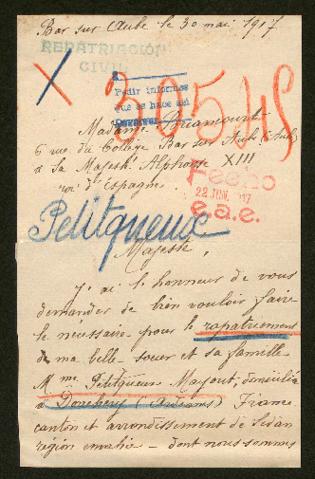 Bar sur Aube le 30 mai 1917
REPATRIACIÓN
CIVIL
X
Pedir informes
que se hace así
20548
Madame Briamourt
6 rue du Collège Bar sur Aube (Aube)
à Sa Majesté Alphonse XIII
roi d'Espagne
Fecho
22 JUN. 1917
e.a.e.
Petitqueux
Majesté,
J'ai l'honneur de vous
demander de bien vouloir faire
le nécessaire pour le rapatriement
de ma belle-soeur et sa famille
Mme Petitqueux Mayout, domiciliée
à Donchery (Ardennes) France
canton et arrondissement de Sedan
région envahie - dont nous sommes